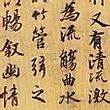 又有清流激
為流觴曲水
竹管弦之
暢敘幽情